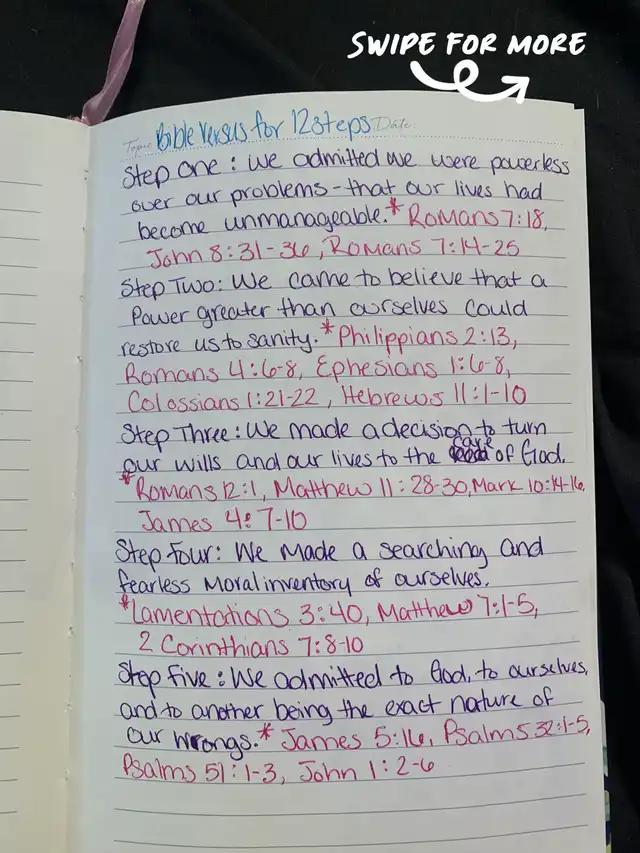 SWIPE FOR MORE
Topic Bible Versus for 12 steps Date:
Step One: We admitted we were powerless
over our problems - that our lives had
become unmanageable.* Romans 7:18,
John 8:31-36, Romans 7:14-25
Step Two: We came to believe that a
Power greater than ourselves could
restore us to sanity. *Philippians 2:13,
Romans 4:6-8, Ephesians 1:6-8,
Colossians 1:21-22, Hebrews 11:1-10
Step Three: We made a decision to turn
our wills and our lives to the care of God.
*Romans 12:1, Matthew 11:28-30, Mark 10:14-16,
James 4:7-10
Step Four: We Made a searching and
fearless Moral inventory of ourselves.
*Lamentations 3:40, Matthew 7:1-5,
2 Corinthians 7:8-10
Step Five: We admitted to God, to ourselves,
and to another being the exact nature of
our wrongs.* James 5:16, Psalms 32:1-5,
Psalms 51:1-3, John 1:2-6